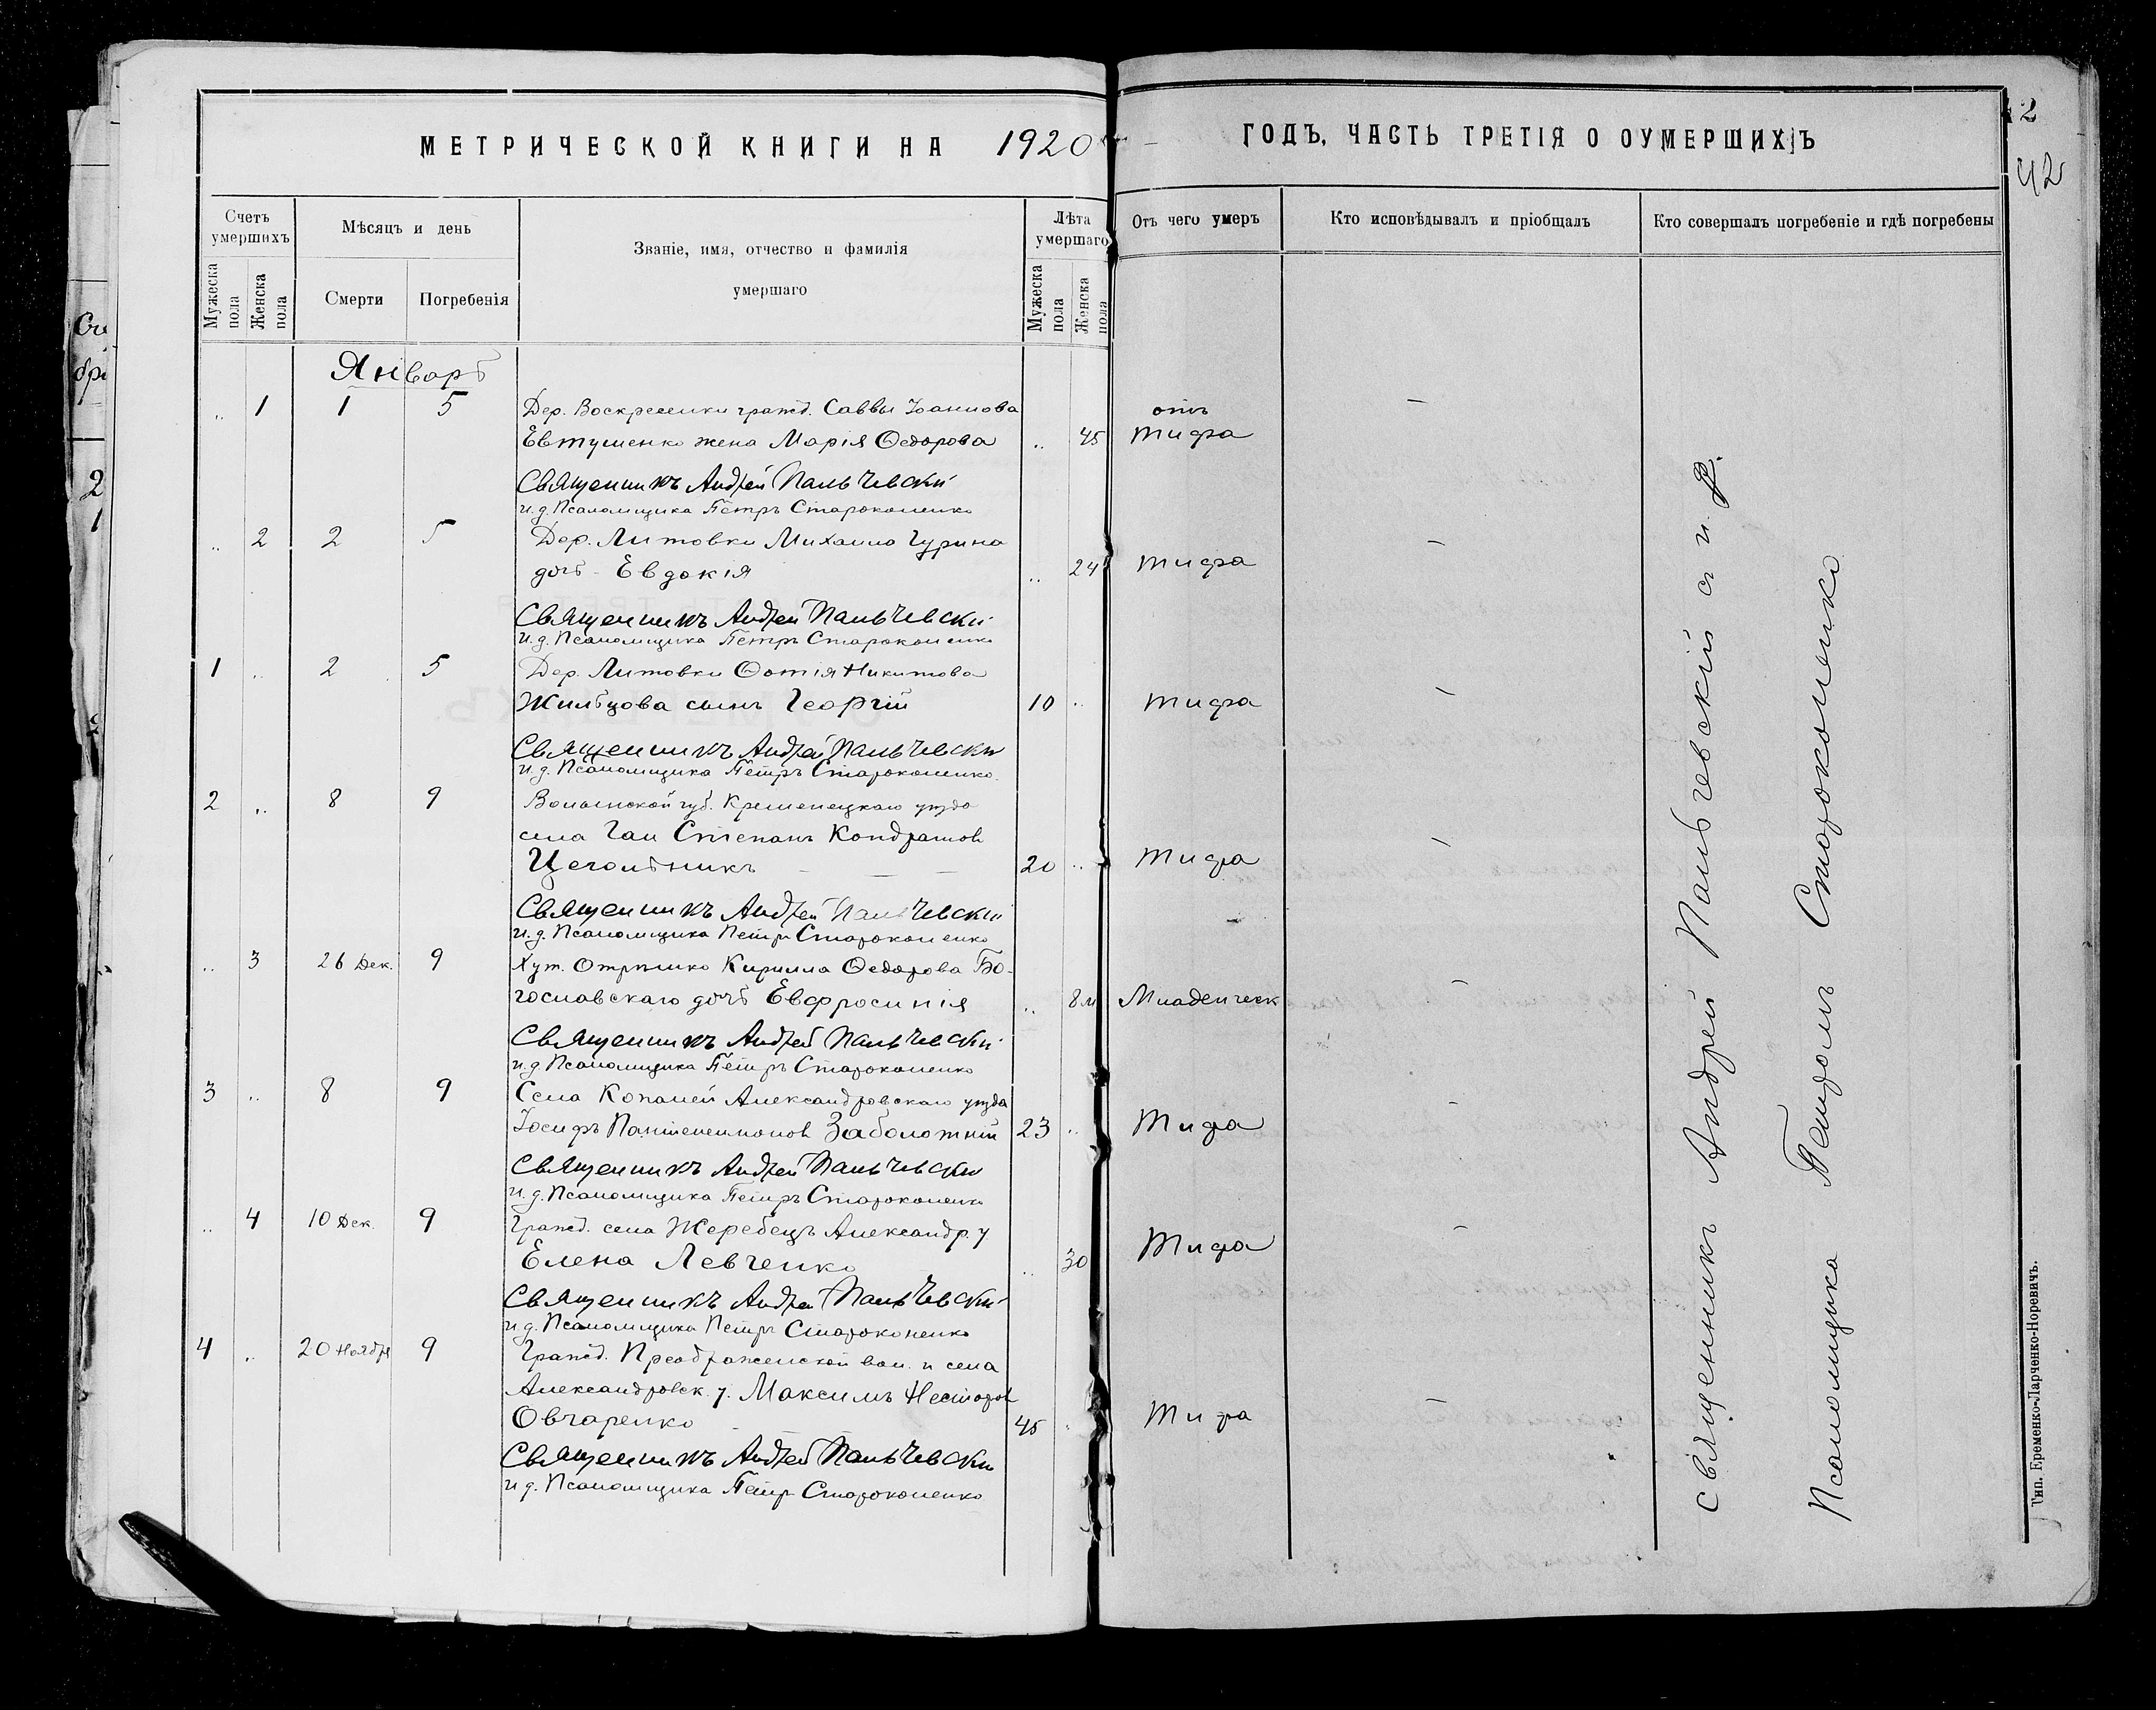 МЕТРИЧЕСКОЙ КНИГИ НА 1920 ГОДЪ, ЧАСТЬ ТРЕТІЯ О ОУМЕРШИХЪ
2
42
Счетъ умершихъ
Мѣсяцъ и день
Званіе, имя, отчество и фамилія умершаго
Лѣта умершаго
Отъ чего умеръ
Кто исповѣдывалъ и пріобщалъ
Кто совершалъ погребеніе и гдѣ погребены
Мужеска пола
Женска пола
Смерти
Погребенія
Мужеска пола
Женска пола
Январь
.. 1 1 5 Дер. Воскресенки гражд. Саввы Іоаннова отъ
Евтушенко жена Марія Ѳедорова .. 45 тифа
Священникъ Андрей Пальчевскій
и.д. Псаломщика Петръ Староконенко
.. 2 2 5 Дер. Литовки Михаила Гурина
дочь - Евдокія .. 24 тифа
Священникъ Андрей Пальчевскій
и.д. Псаломщика Петръ Староконенко
1 .. 2 5 Дер. Литовки Ѳотія Никитова
Жильцова сынъ Георгій 10 .. тифа
Священникъ Андрей Пальчевскій
и.д. Псаломщика Петръ Староконенко
2 .. 8 9 Волынской губ. Кременецкаго уѣзда
села Гаи Степанъ Кондратов
Цегольникъ 20 .. тифа
Священникъ Андрей Пальчевскій
и.д. Псаломщика Петръ Староконенко
.. 3 26 Дек. 9 Хут. Отрѣшко Кирилла Ѳедорова Бо-
гославскаго дочь Евфросинія .. 8 м Младенческ
Священникъ Андрей Пальчевскій
и.д. Псаломщика Петръ Староконенко
3 .. 8 9 Села Копаней Александровскаго уѣзда
Іосифъ Пантелеимонов Заболотній 23 .. Тифа
Священникъ Андрей Пальчевскій
и.д. Псаломщика Петръ Староконенко
.. 4 10 Дек. 9 Гражд. села Жеребецъ Александр. у
Елена Левченко .. 30 Тифа
Священникъ Андрей Пальчевскій
и.д. Псаломщика Петръ Староконенко
4 .. 20 Ноября 9 Гражд. Преображенской вол. и села
Александровск. у. Максимъ Несторов
Овчаренко 45 Тифа
Священникъ Андрей Пальчевскій
и.д. Псаломщика Петръ Староконенко
Священникъ Андрей Пальчевскій с и.д.
Псаломщика Петромъ Староконенко
Тип. Еременко-Ларченко-Норевичъ.